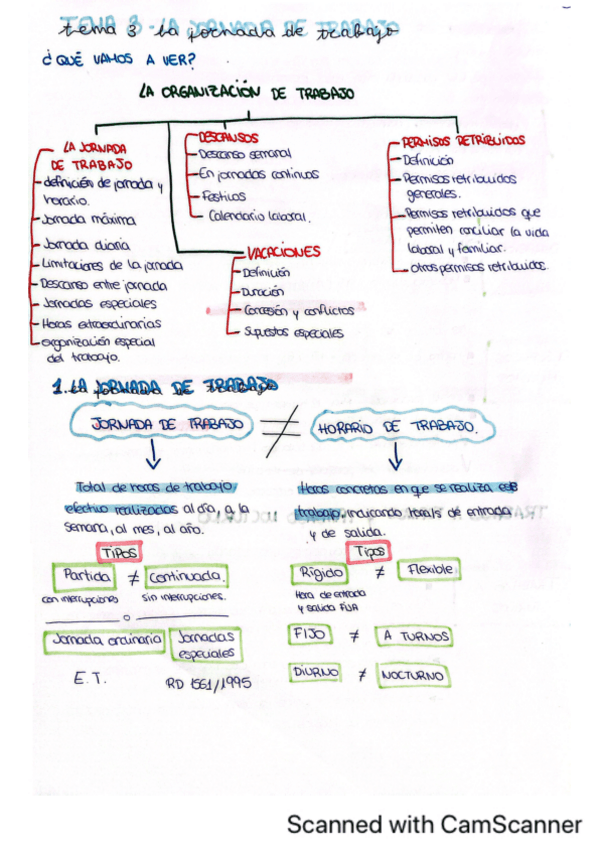 TEMA 3 - LA jornada de trabajo
¿QUÉ VAMOS A VER?
LA ORGANIZACIÓN DE TRABAJO
LA JORNADA
DE TRABAJO
- definición de jornada y
horario.
- Jornada máxima
- Jornada diaria
- Limitaciones de la jornada
- Descanso entre jornada
- Jornadas especiales
- Horas extraordinarias
- organización especial
del trabajo.
DESCANSOS
- Descanso semanal
- En jornadas continuas
- Festivos
- Calendario laboral.
VACACIONES
- Definición
- Duración
- Concesión y conflictos
- Supuestos especiales
PERMISOS RETRIBUIDOS
- Definición
- Permisos retribuidos
generales.
- Permisos retribuidos que
permiten conciliar la vida
laboral y familiar.
- otros permisos retribuidos.
1. LA JORNADA DE TRABAJO
JORNADA DE TRABAJO ≠ HORARIO DE TRABAJO.
Total de horas de trabajo
efectivo realizadas al día, a la
semana, al mes, al año.
TIPOS
Partida ≠ Continuada.
con interrupciones sin interrupciones.
Jornada ordinaria Jornadas
especiales
E.T. RD 1561/1995
Horas concretas en que se realiza ese
trabajo, indicando hora/s de entrada
y de salida.
Tipos
Rígido ≠ Flexible.
Hora de entrada
y salida FIJA
FIJO ≠ A TURNOS
DIURNO ≠ NOCTURNO
Scanned with CamScanner